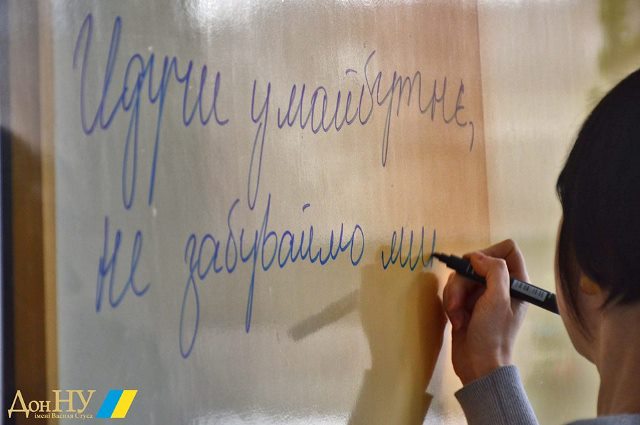 Йдучи у майбутнє,
не забуваймо ми
ДонНУ
імені Василя Стуса